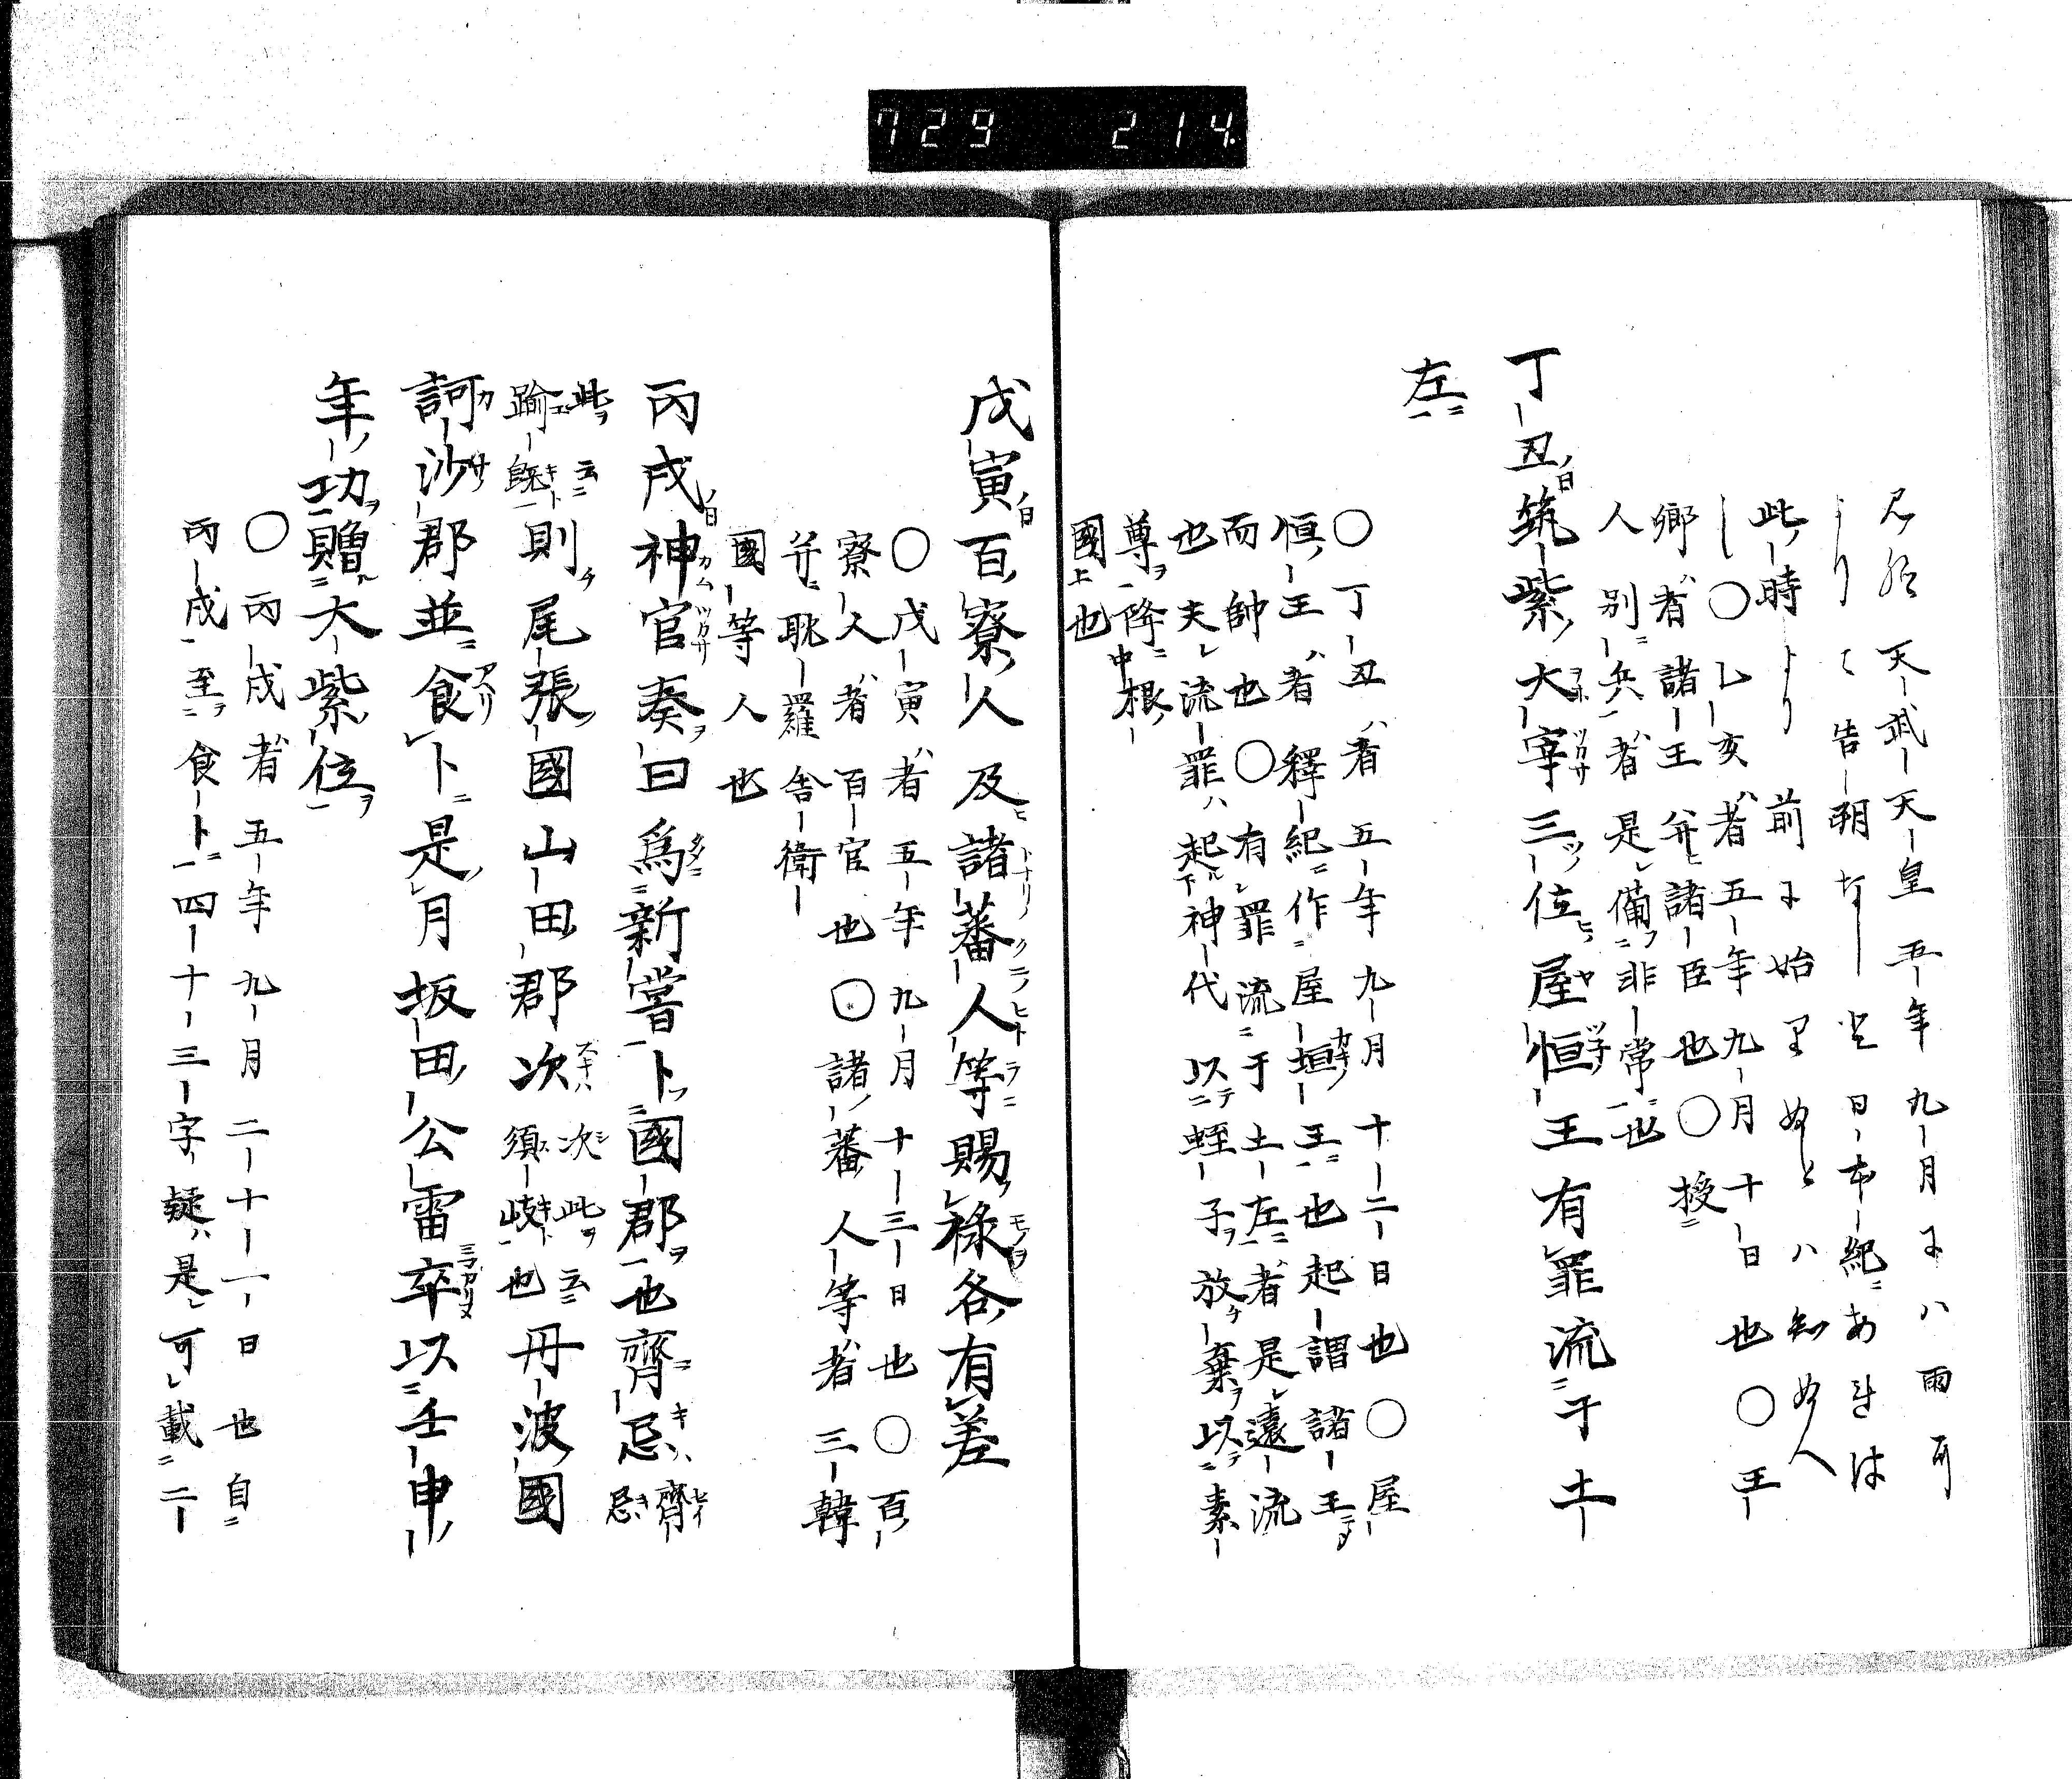 729 214.
天武天皇五年九月にハ雨可
告朔す 日本紀ニあるは
此時より前に始 ハ知ぬ人
〇乙亥者ハ五年九月十日也〇王
卿者ハ諸王并ニ諸臣也〇授ニ
人別ニ兵者ハ是備フニ非常ニ也
丁丑ノ日筑紫ノ大宰三位屋恒王有罪流ニ于土
左ニ
〇丁丑者ハ五年九月十二日也〇屋
恒王者ハ釋紀ニ作ニ屋垣王ニ也起謂諸王ニ
而帥也〇有罪流ニ于土左ニ者ハ是遠流
也夫レ流罪ハ起ル下神代以テニ蛭子ヲ放チ棄ヲ以テニ素
尊ヲ降ニ中根ノ
國上也
戊寅ノ日百寮ノ人及ヒ諸蕃人等ニ賜禄各有差
〇戊寅者ハ五年九月十三日也〇百
寮人者ハ百官也〇諸蕃人等者ハ三韓
并ニ耽羅舎衛
國等人也
丙戌ノ日神官奏曰爲ニ新嘗卜ニ國郡ヲ也齊忌 齊忌
此ヲ云ニ踰既ト則チ尾張ノ國山田郡次 次此ヲ云ニ須岐ト也丹波國
訶沙郡並ニ食卜ニ是ノ月坂田ノ公雷卒以ニ壬申ノ
年ノ功ヲ贈ル大紫ノ位ヲ
〇丙戌者ハ五年九月二十一日也自ニ
丙戌至ヲニ食卜ニ四十三字疑ハ是レ可載ニ二